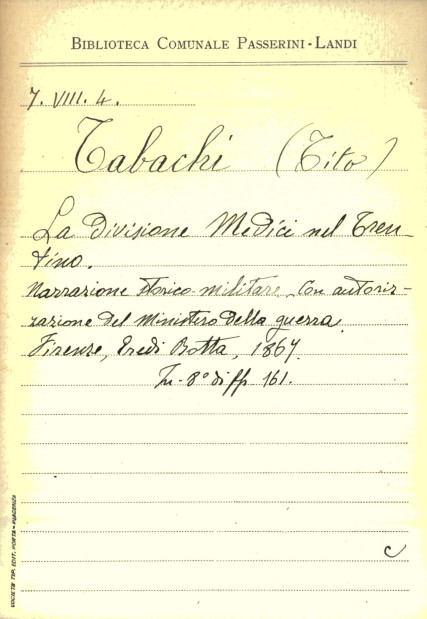 BIBLIOTECA COMUNALE PASSERINI-LANDI
7. VIII. 4.
Tabachi (Tito)
La divisione Medici nel Tren-
tino.
Narrazione storico-militare. Con autoriz-
zazione del Ministero della guerra.
Firenze, Eredi Botta, 1867.
In-8° di pp. 161.
C
SOCIETÀ TIP. EDIT. PORTA - PIACENZA